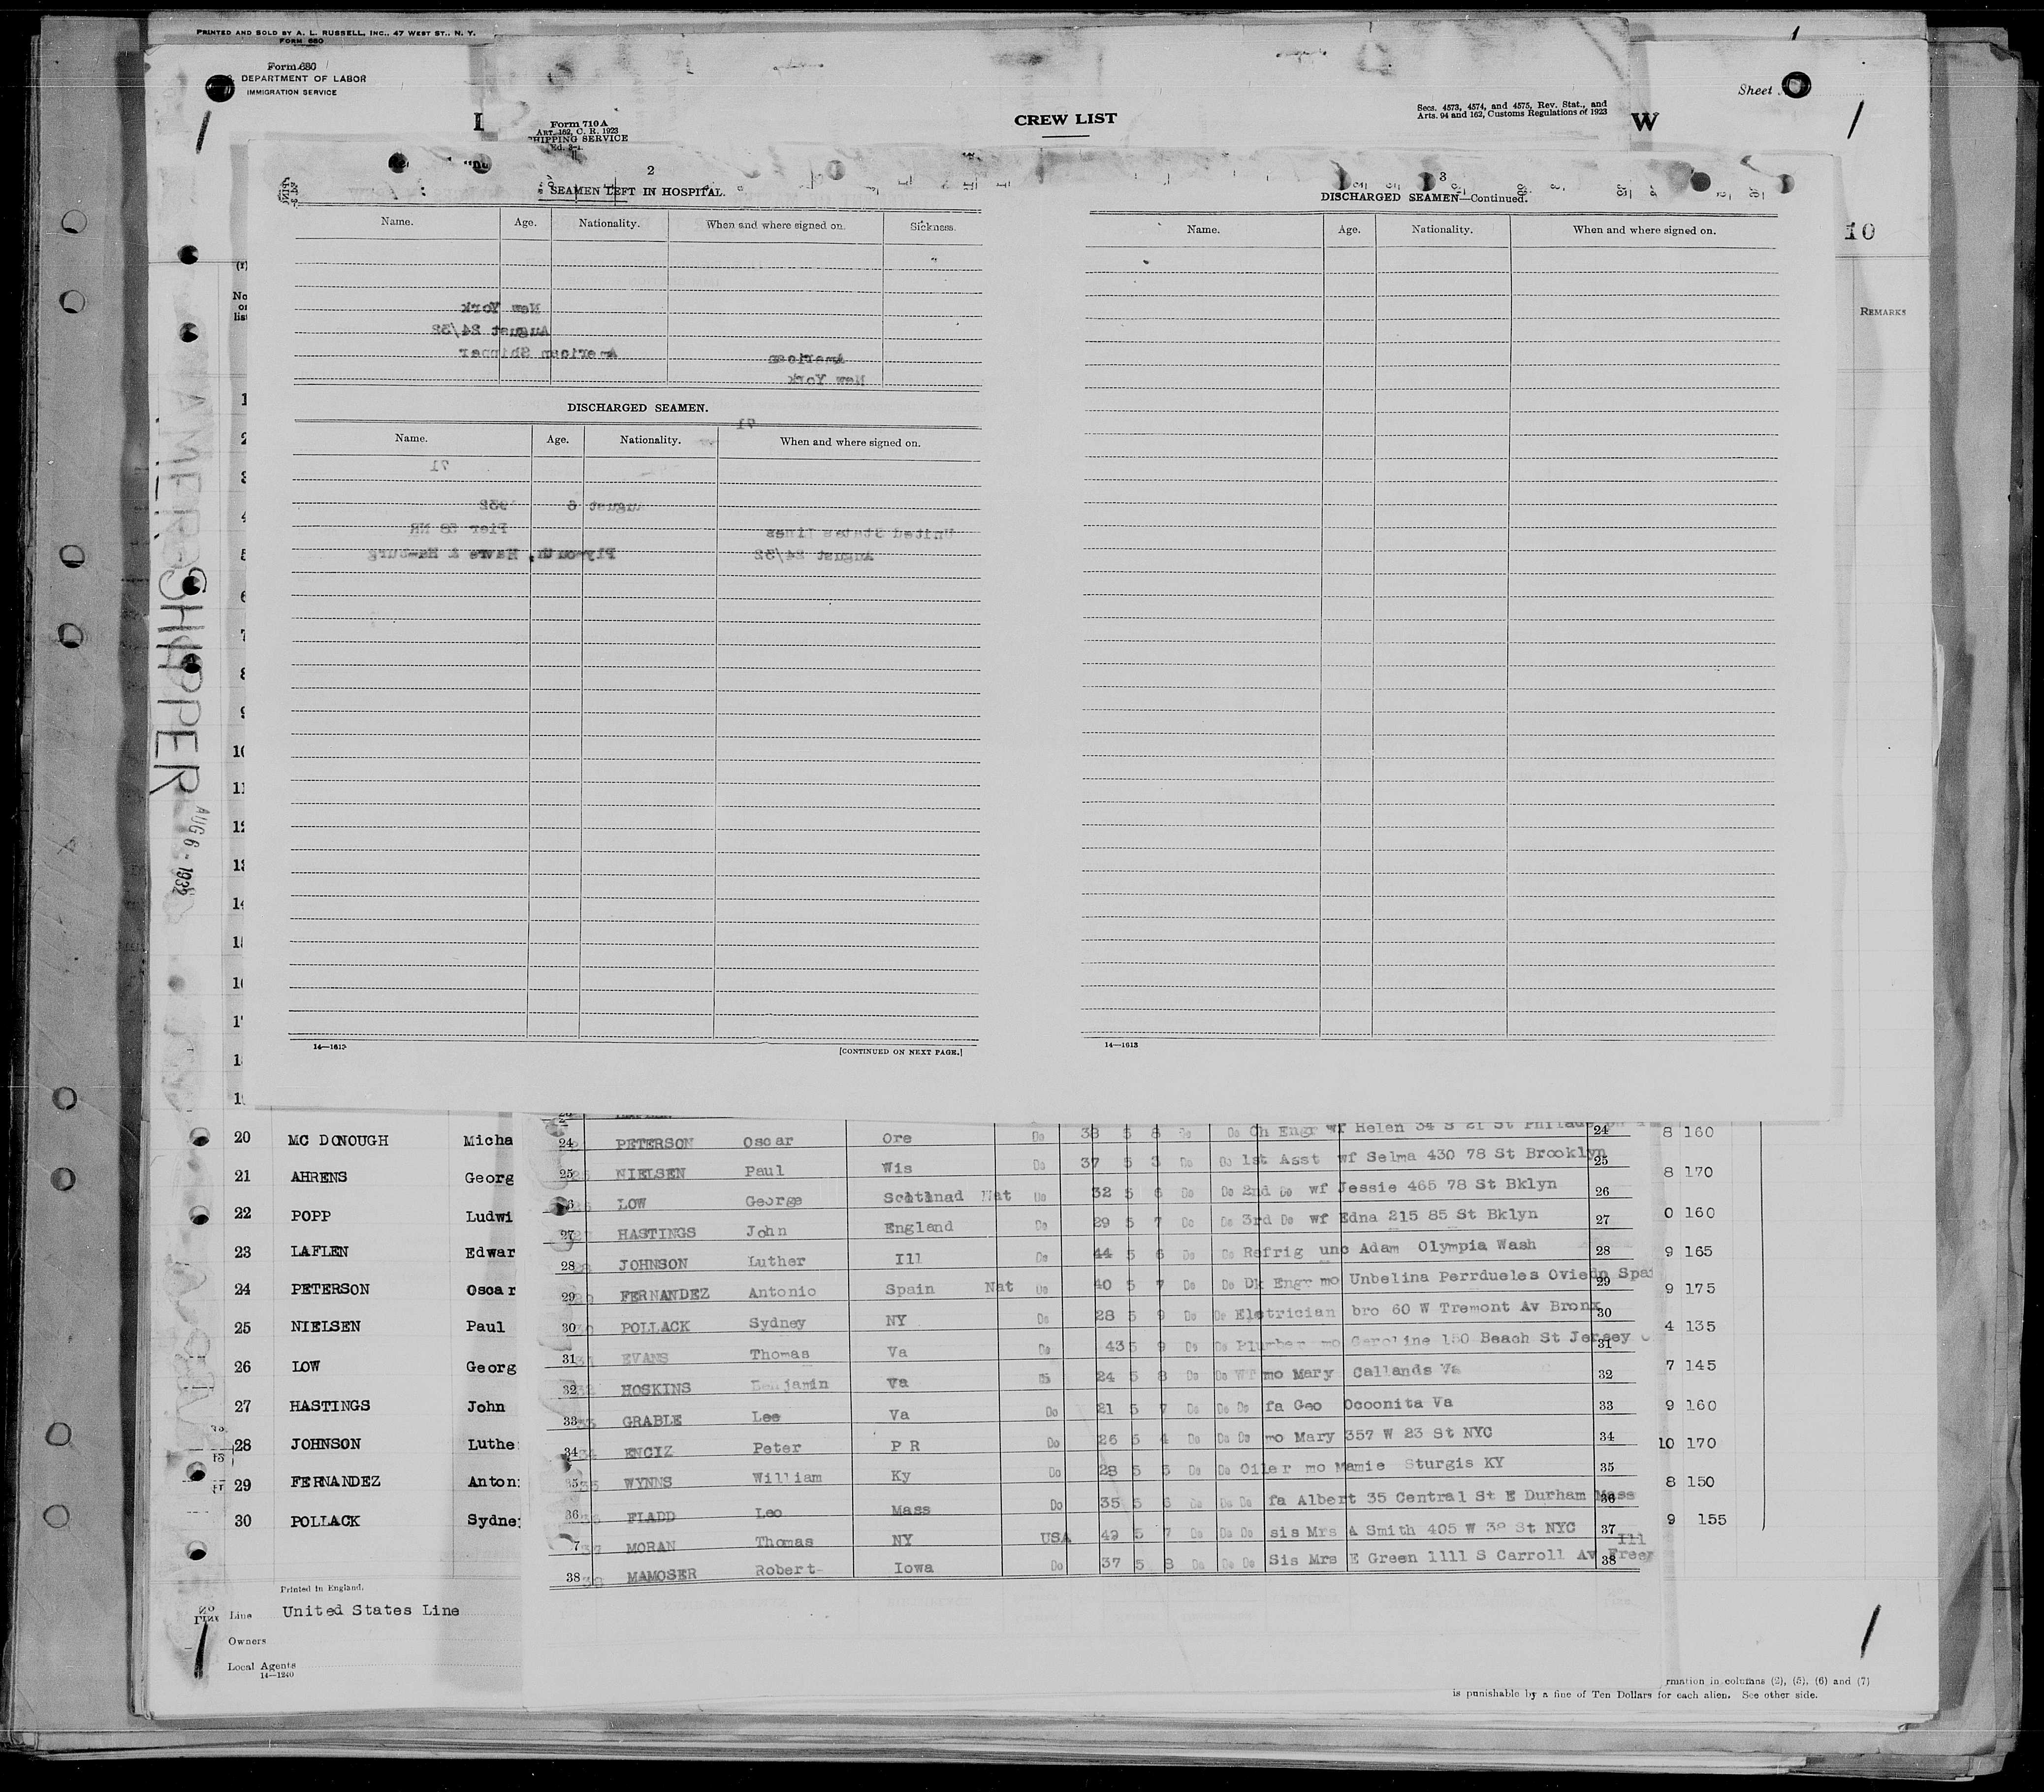 PRINTED AND SOLD BY A. L. RUSSELL, INC., 47 WEST ST., N. Y.
FORM 680
Form 680
DEPARTMENT OF LABOR
IMMIGRATION SERVICE
Sheet
Form 710 A
ART. 162, C. R. 1923
SHIPPING SERVICE
Ed. 3-1
CREW LIST
Secs. 4573, 4574, and 4575, Rev. Stat., and
Arts. 94 and 162, Customs Regulations of 1923
W
2
SEAMEN LEFT IN HOSPITAL.
Name. Age. Nationality. When and where signed on. Sickness.
New York
August 24/32
American Shipper
American
New York
DISCHARGED SEAMEN.
71
Name. Age. Nationality. When and where signed on.
71
August 6 1932
Pier 58 NR
United States Lines
Plymouth, Havre & Hamburg
August 24/32
14—1613
[CONTINUED ON NEXT PAGE.]
3
DISCHARGED SEAMEN—Continued.
Name. Age. Nationality. When and where signed on.
14—1613
10
REMARKS
AMER. SHIPPER
AUG 6 - 1932
(1)
No
on
list
1
2
3
4
5
6
7
8
9
10
11
12
13
14
15
16
17
18
19
20 MC DONOUGH Micha
21 AHRENS Georg
22 POPP Ludwi
23 LAFLEN Edwar
24 PETERSON Oscar
25 NIELSEN Paul
26 LOW Georg
27 HASTINGS John
28 JOHNSON Luthe
29 FERNANDEZ Anton
30 POLLACK Sydne
24 PETERSON Oscar Ore Do 38 5 8 Do Do Ch Engr wf Helen 34 S 21 St 24
25 NIELSEN Paul Wis Do 37 5 3 Do Do 1st Asst wf Selma 430 78 St Brooklyn 25
26 LOW George Scotlnad Nat Do 32 5 6 Do Do 2nd Do wf Jessie 465 78 St Bklyn 26
27 HASTINGS John England Do 29 5 7 Do Do 3rd Do wf Edna 215 85 St Bklyn 27
28 JOHNSON Luther Ill Do 44 5 6 Do Do Refrig unc Adam Olympia Wash 28
29 FERNANDEZ Antonio Spain Nat Do 40 5 7 Do Do Dk Engr mo Unbelina Perrdueles Oviedo Spai 29
30 POLLACK Sydney NY Do 28 5 9 Do Do Eletrician bro 60 W Tremont Av Bronx 30
31 EVANS Thomas Va Do 43 5 9 Do Do Plumber mo Caroline 150 Beach St Jersey C 31
32 HOSKINS Benjamin Va Do 24 5 8 Do Do WT mo Mary Callands Va 32
33 GRABLE Lee Va Do 21 5 7 Do Do Do fa Geo Ocoonita Va 33
34 ENCIZ Peter P R Do 26 5 4 Do Do Do mo Mary 357 W 23 St NYC 34
35 WYNNS William Ky Do 28 5 5 Do Do Oiler mo Mamie Sturgis KY 35
36 FLADD Leo Mass Do 35 5 6 Do Do Do fa Albert 35 Central St E Durham Mass 36
37 MORAN Thomas NY USA 49 5 7 Do Do Do sis Mrs A Smith 405 W 38 St NYC 37
Ill
38 MAMOSER Robert Iowa Do 37 5 8 Do Do Do Sis Mrs E Green 1111 S Carroll Av Freep 38
8 160
8 170
0 160
9 165
9 175
4 135
7 145
9 160
10 170
8 150
9 155
Printed in England.
Line United States Line
Owners
Local Agents
14—1240
rmation in columns (2), (5), (6) and (7)
is punishable by a fine of Ten Dollars for each alien. See other side.